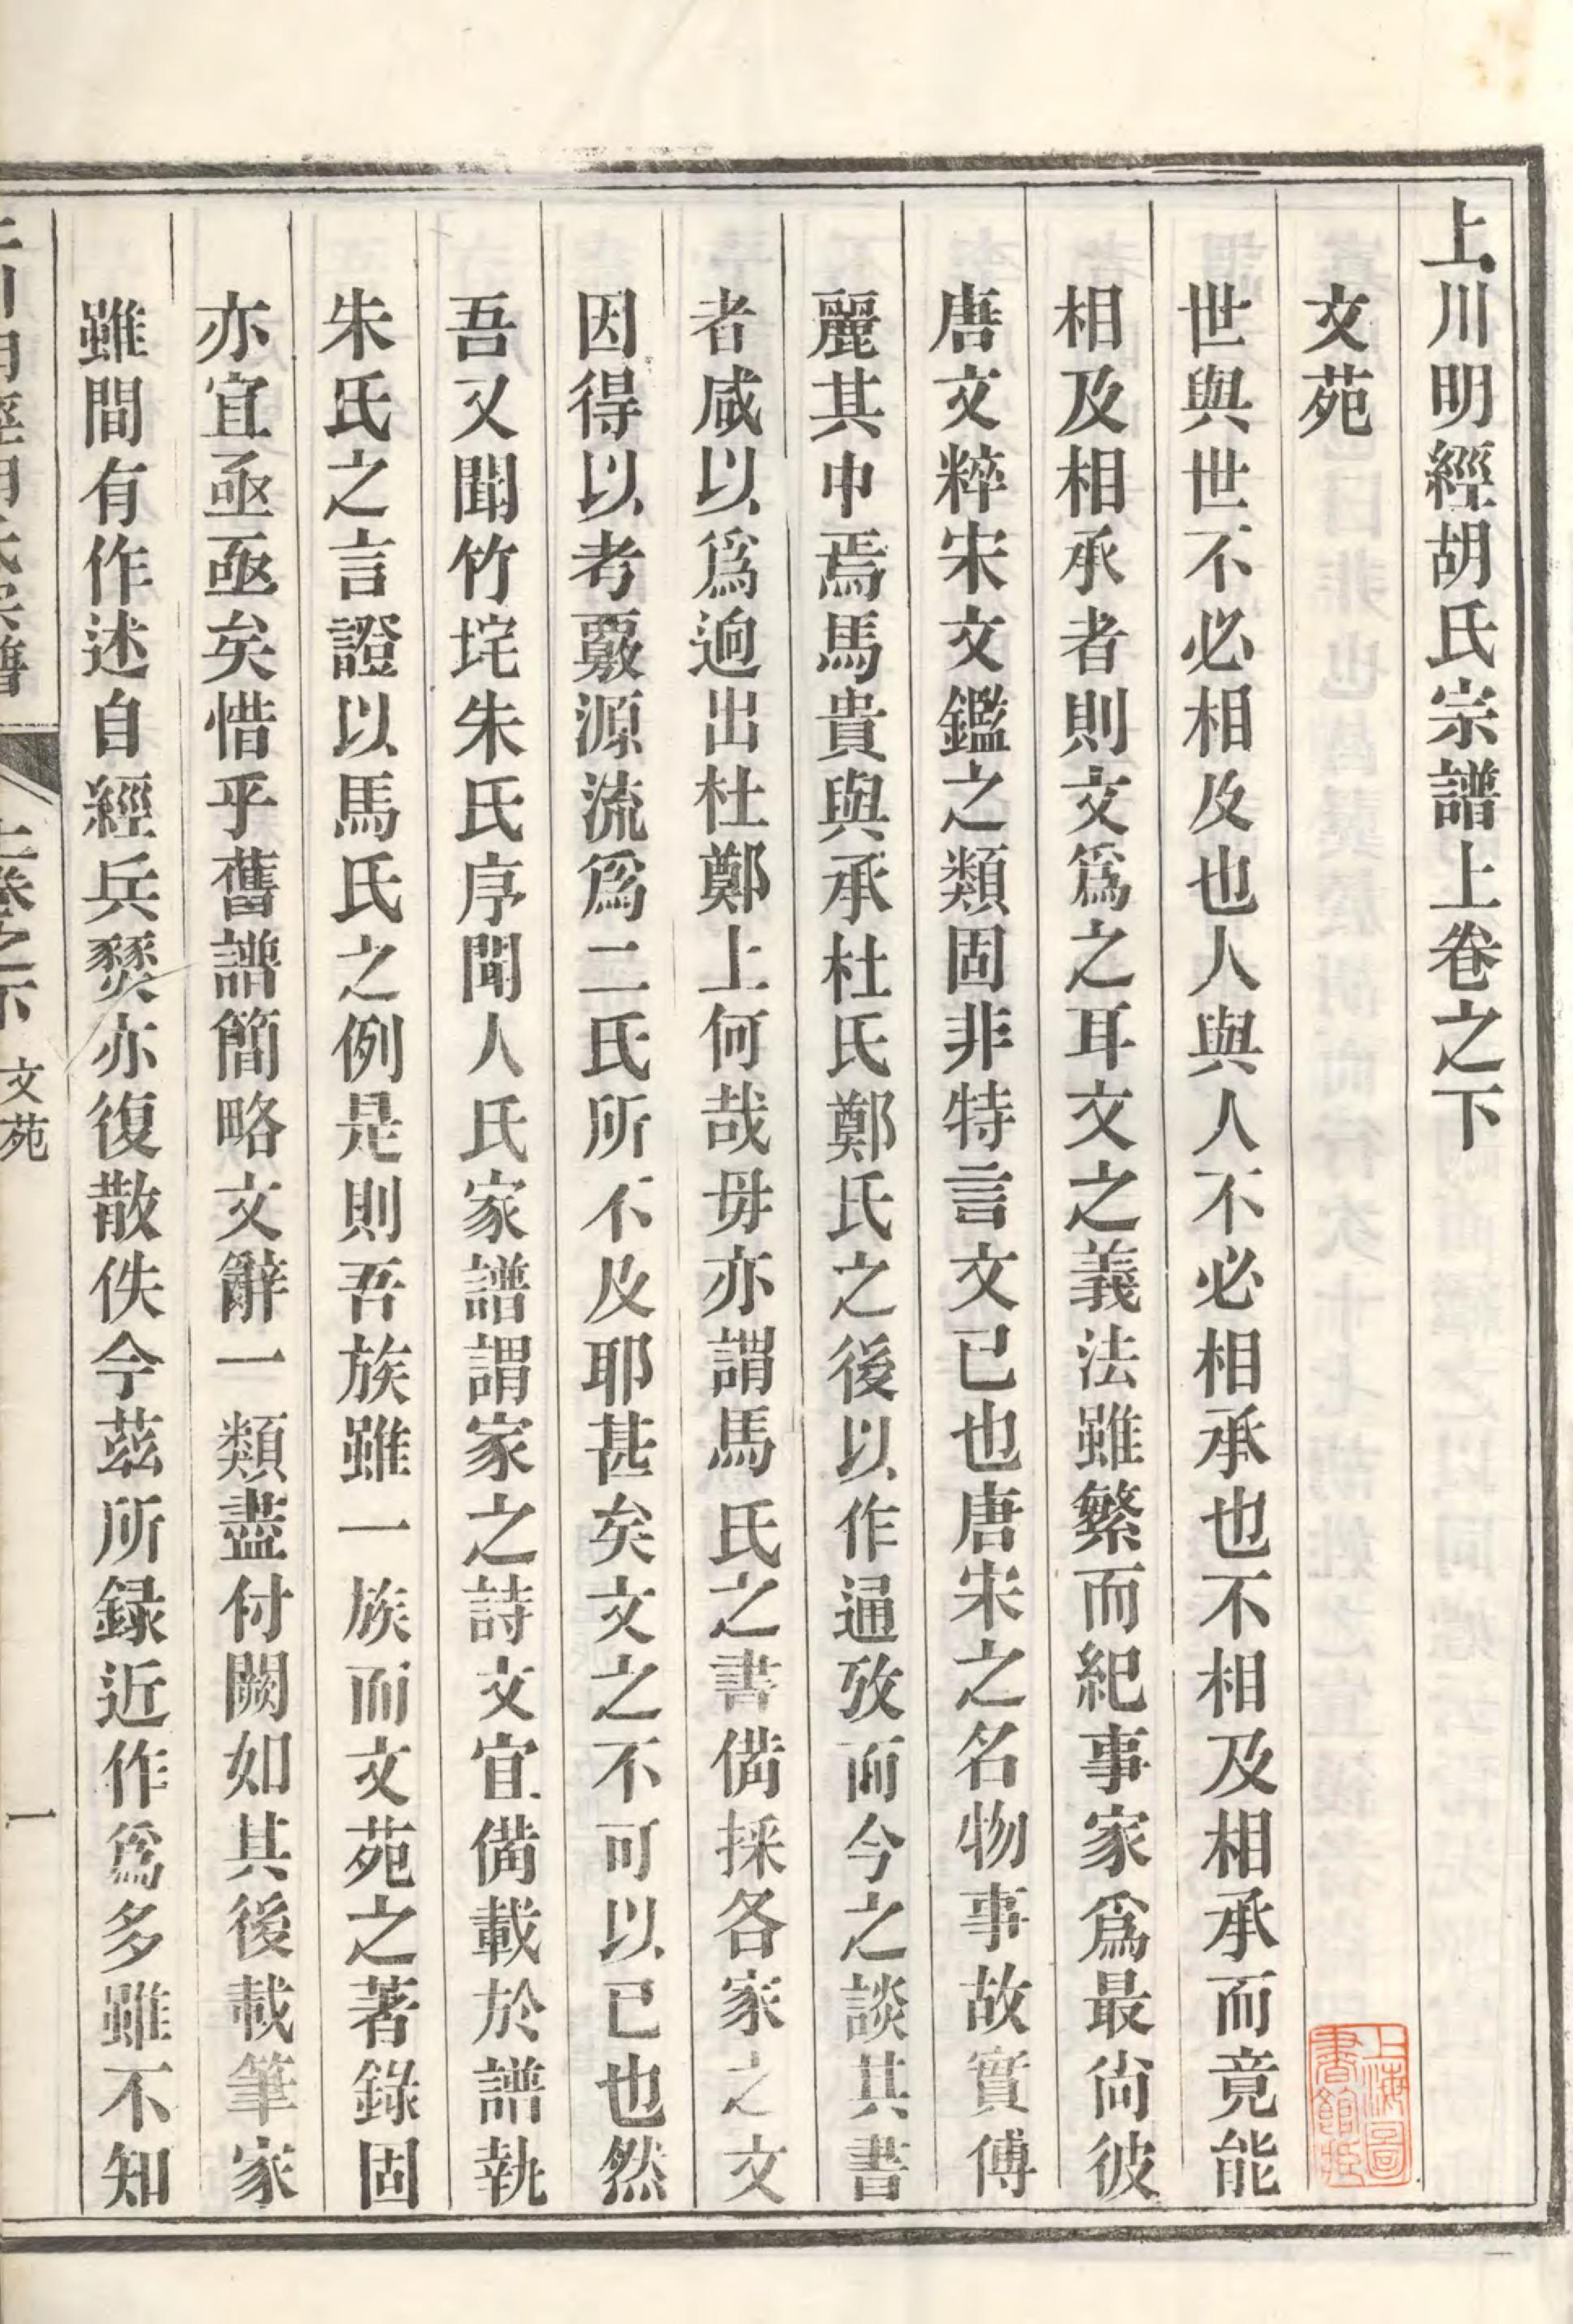 上川明經胡氏宗譜上卷之下
文苑
世與世不必相及也人與人不必相承也不相及相承而竟能
相及相承者則文爲之耳文之義法雖繁而紀事家爲最尙彼
唐文粹宋文鑑之類固非特言文已也唐宋之名物事故實傅
麗其中焉馬貴與承杜氏鄭氏之後以作通攷而今之談其書
者咸以爲逈出杜鄭上何哉毋亦謂馬氏之書備採各家之文
因得以考覈源流爲二氏所不及耶甚矣文之不可以已也然
吾又聞竹垞朱氏序聞人氏家譜謂家之詩文宜備載於譜執
朱氏之言證以馬氏之例是則吾族雖一族而文苑之著錄固
亦宜亟亟矣惜乎舊譜簡略文辭一類盡付闕如其後載筆家
雖間有作述自經兵燹亦復散佚今茲所録近作爲多雖不知
上川明經胡氏宗譜
上卷之下
文苑
一
上海圖
書館藏